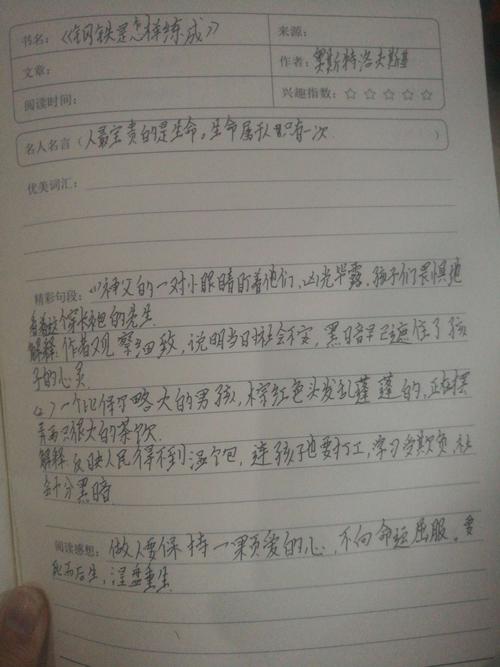 书名：《钢铁是怎样练成》
来源：
文章：
作者：奥斯特洛夫斯基
阅读时间：
兴趣指数：☆ ☆ ☆ ☆ ☆
名人名言（人最宝贵的是生命。生命属于人只有一次）
优美词汇：
精彩句段：(1)神父的一对小眼睛盯着他们，凶光毕露，孩子们畏惧地
看着这个穿长袍的先生
解释：作者观察细致，说明当日社会不安，黑暗早已遮住了孩
子的心灵
(2)一个比保尔略大的男孩，棕红色头发乱蓬蓬的，正在摆
弄两只很大的茶炊
解释：反映人民得不到温饱，连孩子也要打工，学习多欺负社
会十分黑暗
阅读感想：做人要保持一颗爱的心，不向命运屈服。要
死而后生，涅盘重生